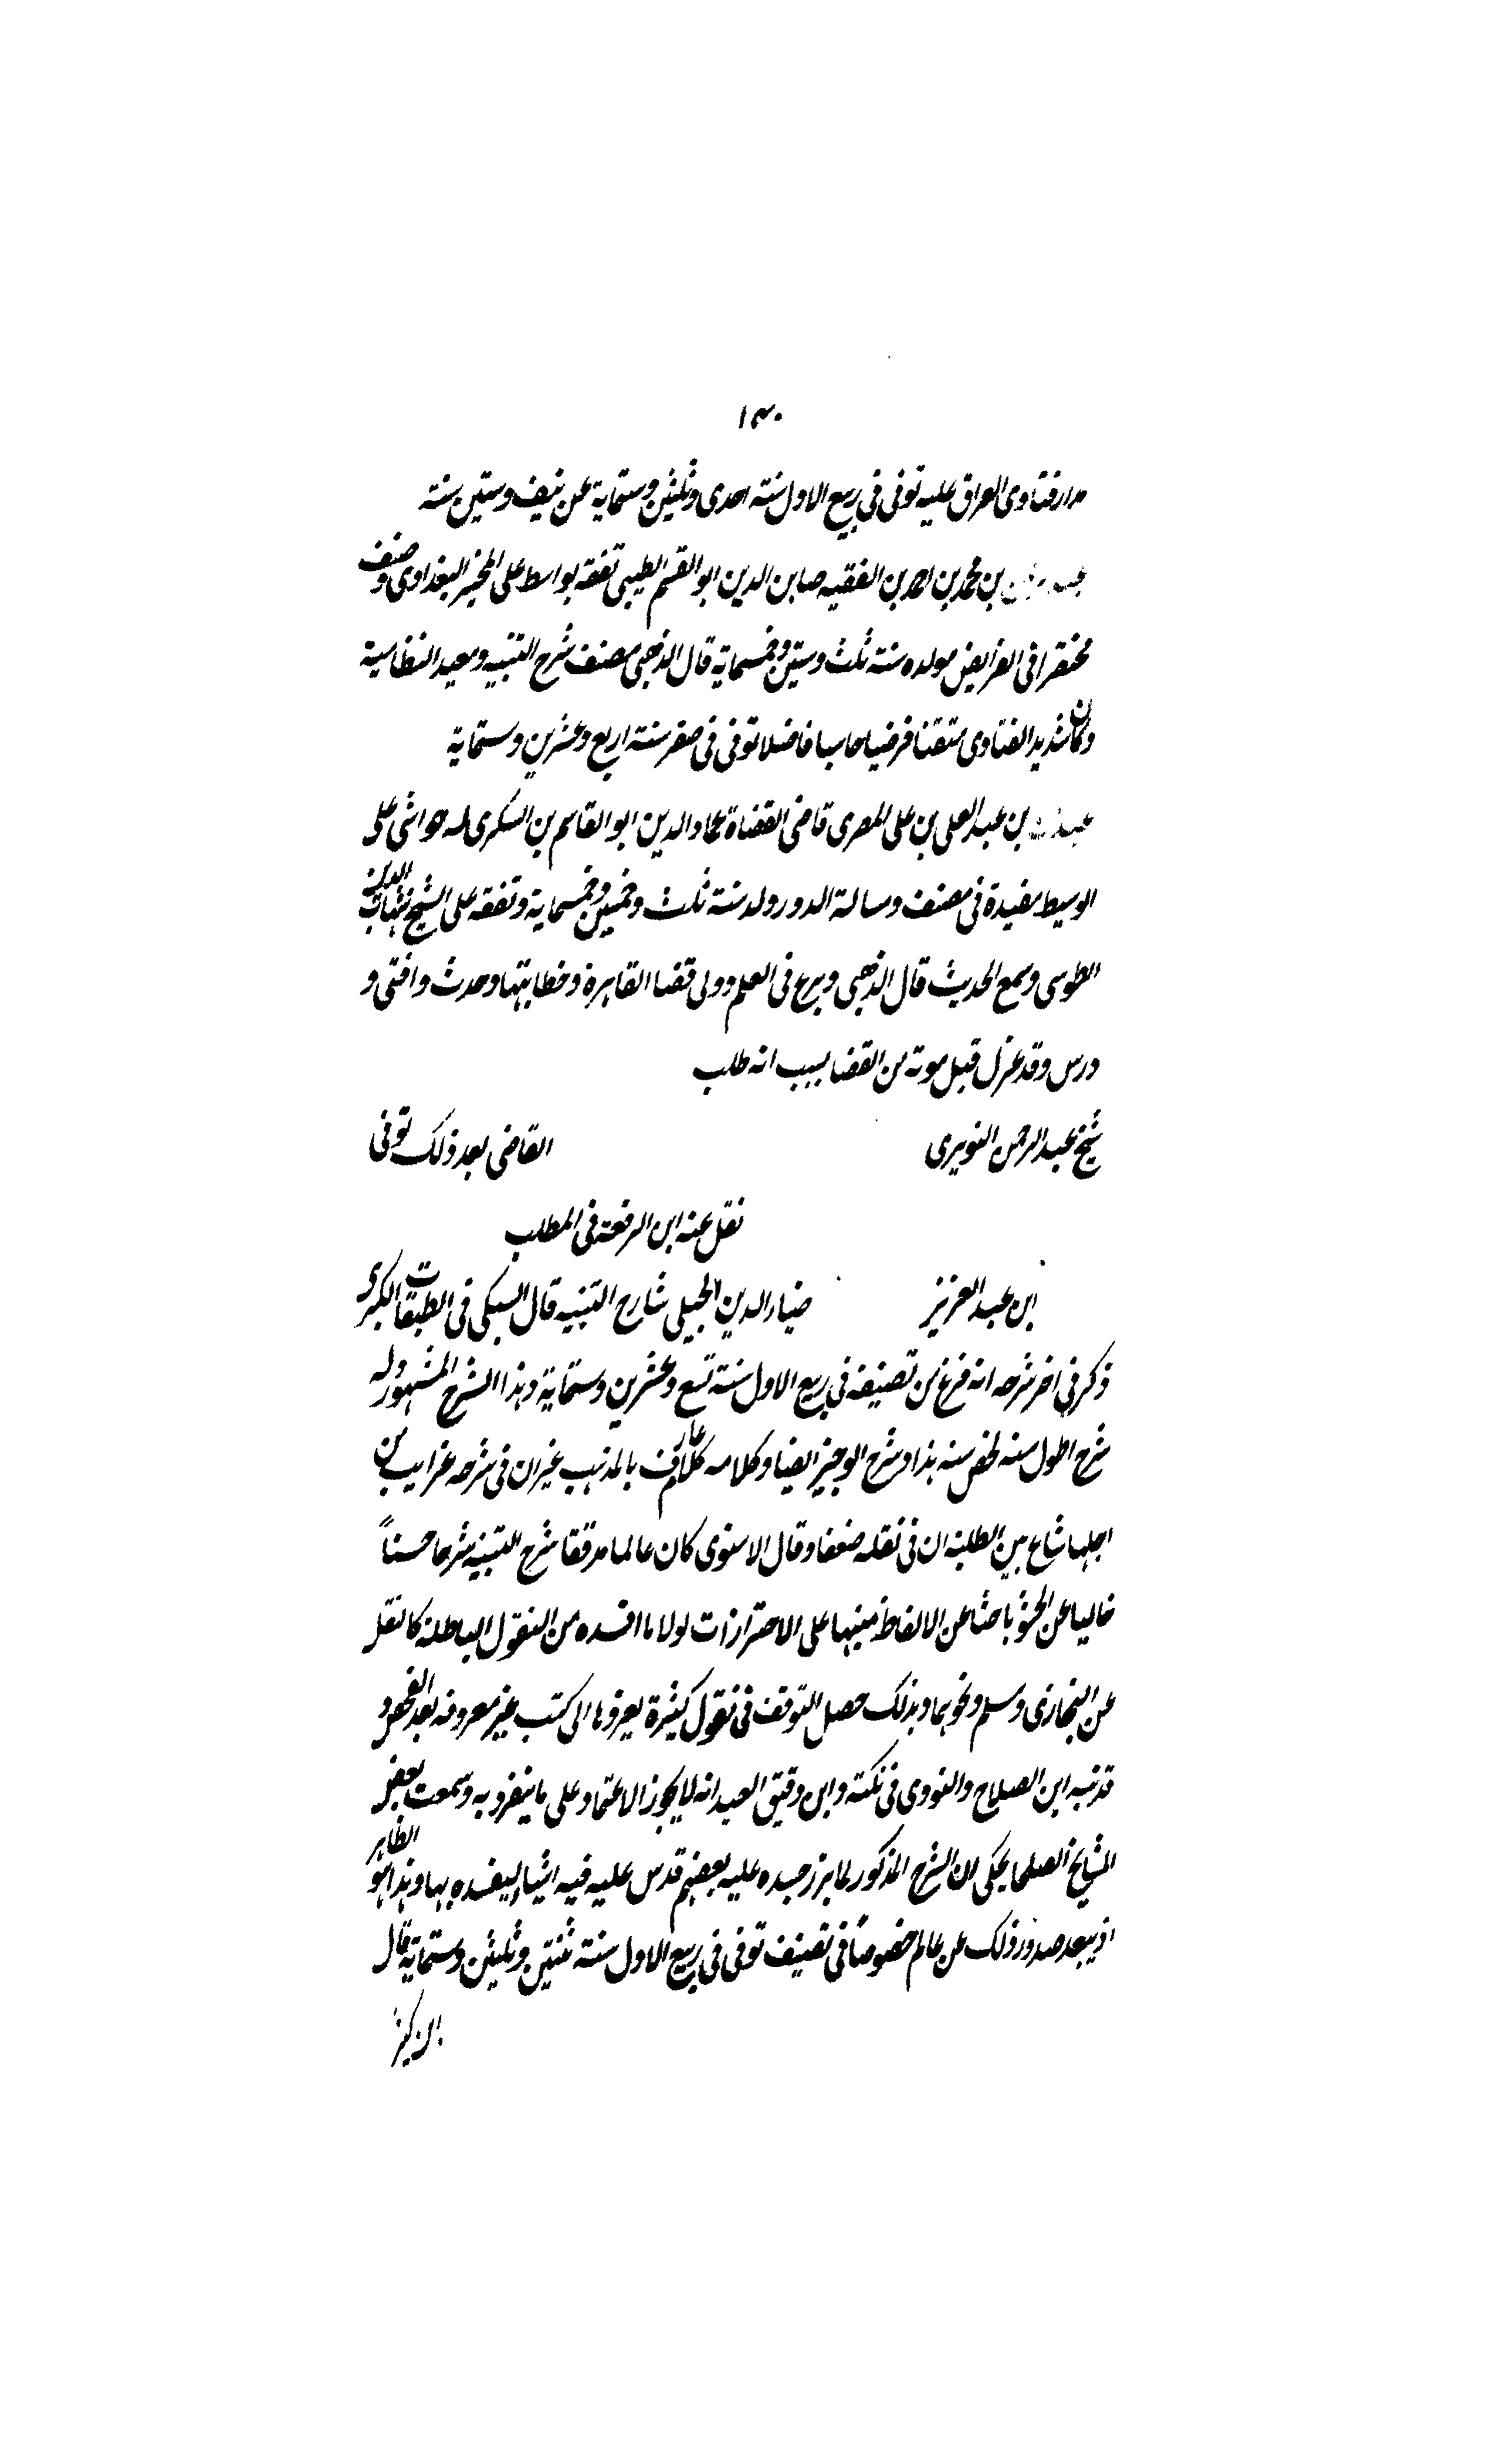 ١٣٠
مدار فتاوى العراق عليه توفى فى ربيع الاول سنة احدى وثلثين وستماية عن نيف وستين سنة
بن محمد بن احمد بن الفقيه صاين الدين ابو القسم الطيبى تفقه بواسط على المجير البغدادى وصنف
مختصرا فى الفرايض مولده سنة ثلث وستين وخمسماية قال الذهبى مصنف شرح التنبيه ومعيد النظامية
وكان شديد الفتاوى متقنا فرضيا حاسبا فاضلا توفى فى صفر سنة اربع وعشرين وستماية
بن عبد العلى بن على المصرى قاضى القضاة عماد الدين ابو القاسم بن السكرى له حواشى على
الوسيط مفيدة فى مصنف وسالة الدور ولد سنة ثلث وخمسين وخمسماية وتفقه على الشيخ شهاب الدين
الطوسى وسمع الحديث قال الذهبى وبرع فى العلم وولى قضا القاهرة وخطابتها وحدث وافتى و
درس وقد عزل قبل موته من القضا بسبب انه طلب
شيخ عبد الرحمن النويرى القاضى بعد ذلك توفى
نقل عنه ابن الرفعة فى المطلب
ابن عبد العزيز ضياء الدين الجيلى شارح التنبيه قال السبكى فى الطبقات الكبرى
ذكر فى اخر شرحه انه فرغ من تصنيفه فى ربيع الاول سنة تسع وعشرين وستماية وهذا الشرح المشهور وله
شرح اطول منه لخص منه هذا وشرح الوجيز ايضا وكلامه كلام عارف بالمذهب غير ان فى شرحه غرايب من
اجلها شاع بين الطلبة ان فى نقله ضعفا وقال الاسنوى كان عالما مدققا شرح التنبيه شرحا حسناً
خاليا عن الحشو باحثا عن الالفاظ منبها على الاحترازات لولا ما افسده من النقول الباطلة كالنقل
عن البخارى ومسلم ونحوهما وبذلك حصل التوقف فى نقول كثيرة يعزوها الى كتب غير معروفة بعد الفحص و
قد نبه ابن الصلاح والنووى فى نكته وابن دقيق العيد انه لا يجوز الاعتماد على ما ينفرد به وسمعت بعض
المشايخ الصلحا يحكى ان الشرح المذكور لما برز حسده عليه بعضهم فدس عليه فيه اشياء ليفسده بها وهذا هو الظاهر
اذ يبعد صدور ذلك عن عالم خصوصًا فى تصنيف توفى فى ربيع الاول سنة ثنتين وثلثين وستماية قال